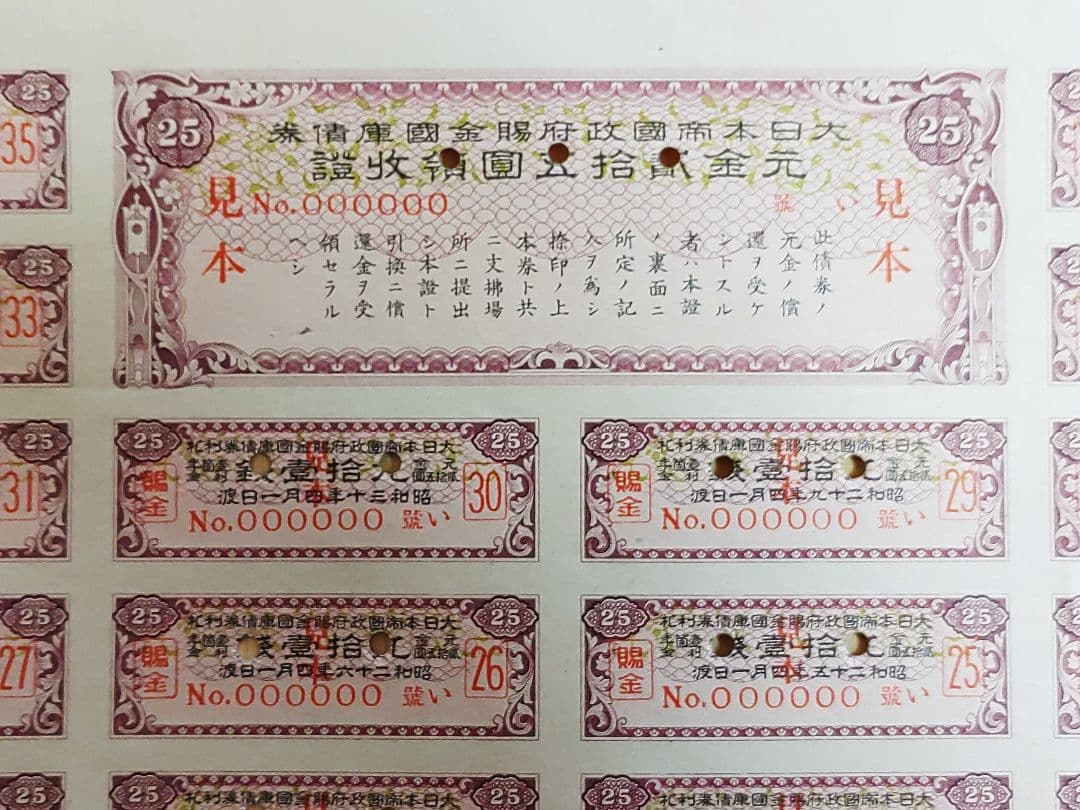 25
25
大日本帝國政府賜金國庫債券
元金貳拾五圓領收證
見本
い號
No.000000
見本
此債券ノ
元金ノ償
還ヲ受ケ
ントスル
者ハ本證
ノ裏面ニ
所定ノ記
入ヲ爲シ
捺印ノ上
本券ト共
ニ支拂場
所ニ提出
シ本證ト
引換ニ償
還金ヲ受
領セラル
ヘシ
25
25
大日本帝國政府賜金國庫債券利札
元金貳拾五圓
拾壹錢
見本
昭和二十九年四月一日渡
い號
No.000000
29
賜金
25
25
大日本帝國政府賜金國庫債券利札
元金貳拾五圓
拾壹
見本
昭和三十年四月一日渡
い號
No.000000
30
賜金
25
25
大日本帝國政府賜金國庫債券利札
元金貳拾五圓
拾壹錢
見本
昭和二十五年四月一日渡
い號
No.000000
25
賜金
25
25
大日本帝國政府賜金國庫債券利札
元金貳拾五圓
拾壹錢
見本
昭和二十六年四月一日渡
い號
No.000000
26
賜金
25
25
大日本帝國政府賜金國庫債券利札
25
25
大日本帝國政府賜金國庫債券利札
25
35
25
33
25
31
25
27
25